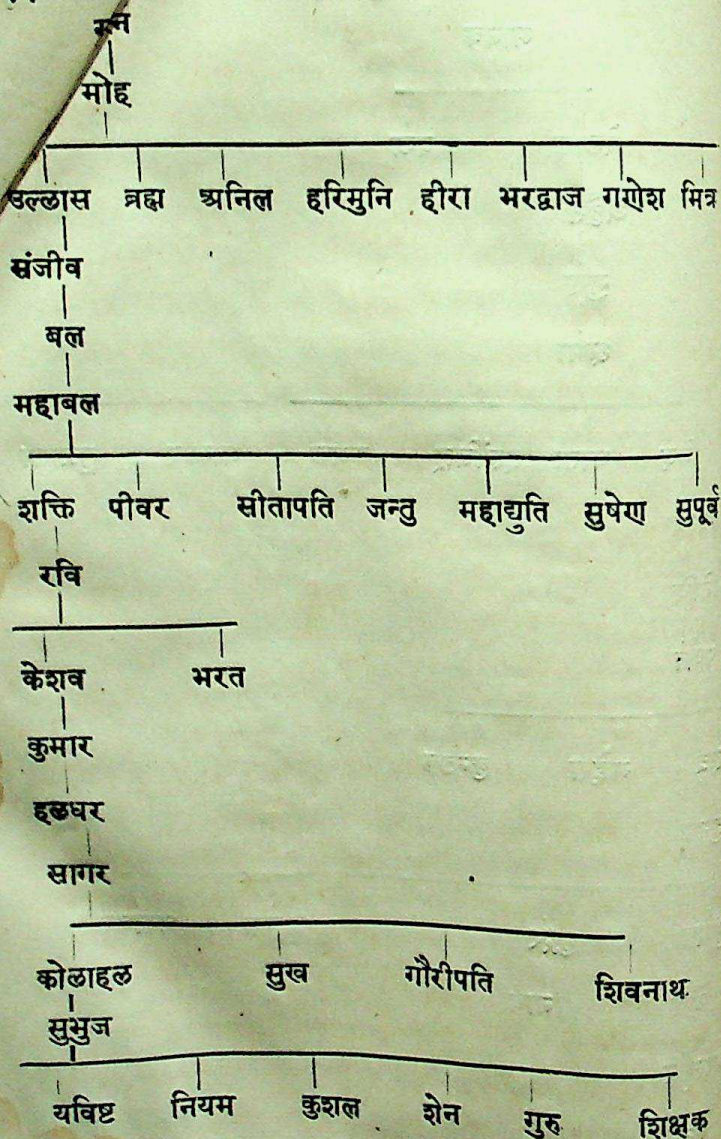 मोह
उल्लास ब्रह्म अनिल हरिमुनि हीरा भरद्वाज गणेश मित्र
संजीव
बल
महाबल
शक्ति पीवर सीतापति जन्तु महाद्युति सुषेण सुपूर्व
रवि
केशव भरत
कुमार
हळधर
सागर
कोलाहल सुख गौरीपति शिवनाथ
सुभुज
यविष्ट नियम कुशल शेन गुरु शिक्षक